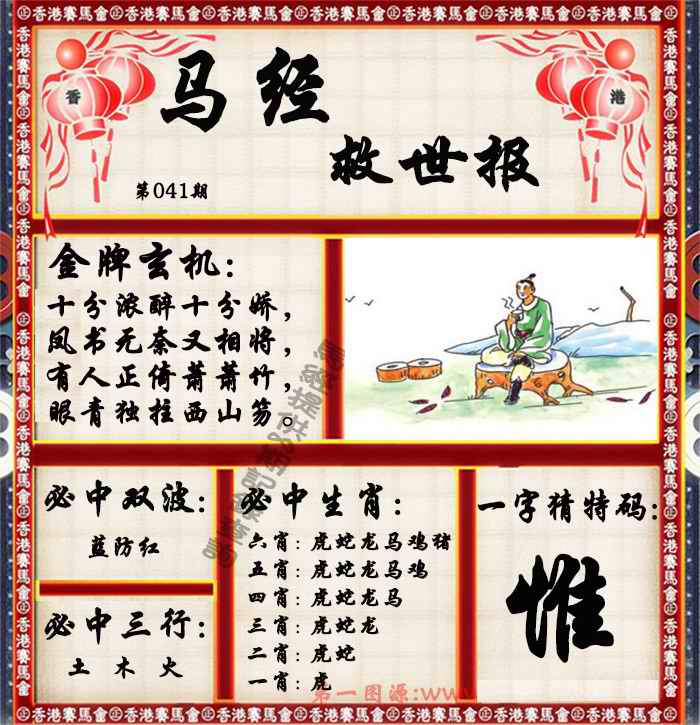 香港賽馬會
香 港
马经
救世报
第041期
金牌玄机：
十分浓醉十分娇，
凤书无奈又相将，
有人正倚萧萧竹，
眼青独拄西山笏。
必中双波：
蓝防红
必中三行：
土 木 火
必中生肖：
六肖：虎蛇龙马鸡猪
五肖：虎蛇龙马鸡
四肖：虎蛇龙马
三肖：虎蛇龙
二肖：虎蛇
一肖：虎
一字猜特码：
惟
第一图源:www